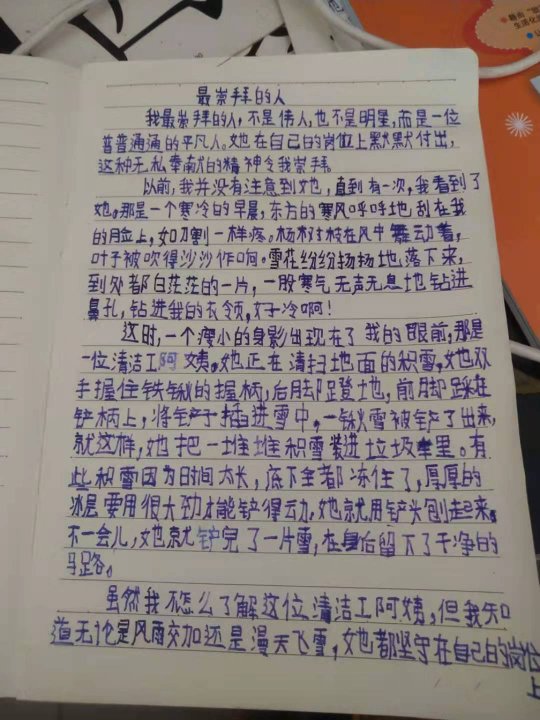 最崇拜的人
我最崇拜的人,不是伟人,也不是明星,而是一位
普普通通的平凡人。她在自己的岗位上默默付出,
这种无私奉献的精神令我崇拜。
以前,我并没有注意到她,直到有一次,我看到了
她。那是一个寒冷的早晨,东方的寒风呼呼地刮在我
的脸上,如刀割一样疼。杨树枝在风中舞动着,
叶子被吹得沙沙作响。雪花纷纷扬扬地落下来,
到处都白茫茫的一片,一股寒气无声无息地钻进
鼻孔,钻进我的衣领,好冷啊!
这时,一个瘦小的身影出现在了我的眼前,那是
一位清洁工阿姨。她正在清扫地面的积雪,她双
手握住铁锹的握柄,后脚蹬地,前脚踩在
铲柄上,将铲子插进雪中,一锹雪被铲了出来,
就这样,她把一堆堆积雪装进垃圾车里。有
些积雪因为时间太长,底下全都冻住了,厚厚的
冰层要用很大劲才能铲得动,她就用铲头刨起来。
不一会儿,她就铲完了一片雪,在身后留下了干净的
马路。
虽然我不怎么了解这位清洁工阿姨,但我知
道无论是风雨交加还是漫天飞雪,她都坚守在自己的岗位
上